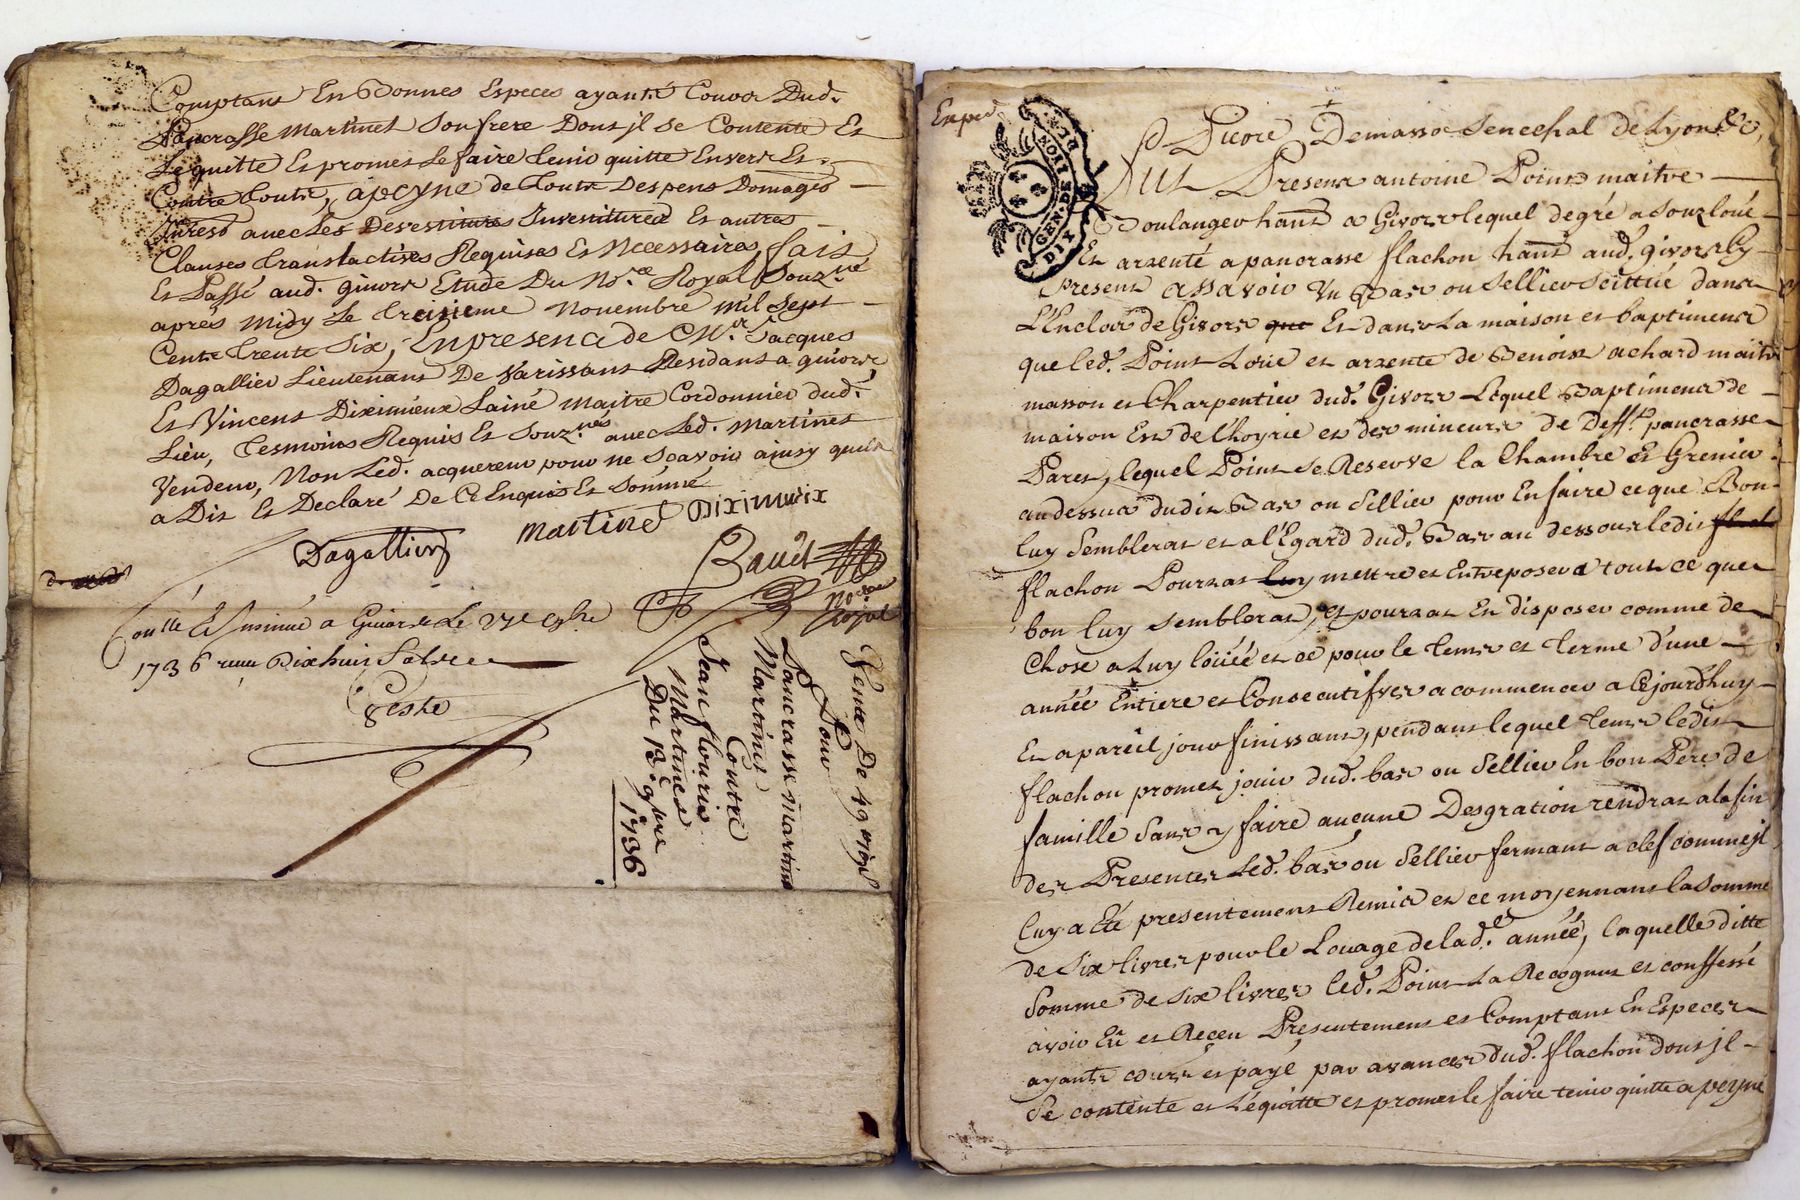 Comptans En Bonnes Especes ayants Cours Dud.
Pancrasse Martinet Son frere Dont jl se Contente Et
Le quitte Et promet Le faire tenir quitte Envers Et
Contre touts, apeyne de touts Despens Domages
Interest avec Les Desvestitures Investitures Et autres
Clauses translactives Requises Et Necessaires, fait
Et Passé aud. givors Etude Du No.re Royal Souz.né
apres Midy Le treisieme Novembre Mil Sept
Cents trente Six, En presence de M.r Jacques
Dagallier Lieutenant De Varissant Residant a givors,
Et Vincent Diximieux Lainé Maitre Cordonnier dud.
Lieu, tesmoins Requis Et Souz.nés avec Led. Martinet
Vendeur, Non Led. acquereur pour ne Scavoir ainsy quil
a Dit Et Declaré De Ce Enquis Et Sommé
Dagallier
Martinet
Diximieux
No.re
Royal
Coullé Et Insinué a Givors Le
1736 Dixhuit Sols
Vente De 49
Pour
Pancrasse Martinet
Martinet
Contre
Jean flouris
Martinet
Du 13.e 9bre
1736
GEN. DE LION
DIX DEN
Demasso Senechal de Lyon &c,
Fut Present antoine Point maitre
Boulanger hant a Givors lequel degré a Souzloüé
Et arrenté a pancrasse flachon hant aud. givors Cy
present assavoir Un Bas ou Sellier Scittué dans
L'Enclos de Givors que Et dans La maison et baptiments
que led. Point Loüe et arrente de Benoist achard maitre
masson et Charpentier dud. Givors Lequel Baptiment de
maison Est de l'hoyrie et des mineurs de Deff.t pancrasse
Paret, lequel Point se Reserve la Chambre et Grenier
audessus dudit Bas ou Sellier pour En faire ce que Bon
luy Semblerat et a l'Egard dud. Bas au dessous ledit
flachon Pourrat luy mettre et Entreposer tout ce que
bon luy semblerat, et pourrat En disposer comme de
Chose a Luy loüéé et ce pour le tems et terme d'une
annéé Entiere et Consecutifves a commencer a Cejourdhuy
Et a pareil jour finissant, pendant lequel tems ledit
flachon promet jouir dud. bas ou Sellier En bon Pere de
famille Sans y faire aucune Desgration rendrat a la fin
des Presentes Led. bas ou Sellier fermant a clef comme jl
luy a Eté presentement Remis et ce moyennant la Somme
de Six livres pour le Louage de lad.e annéé, laquelle ditte
Somme de Six livres led. Point La Recognut et conffessé
avoir Eû et Reçeu Presentement et Comptant En Especes
ayants cours et payé par avances dud. flachon dont jl
Se contente et L'equitte et promet le faire tenir quitte a peyne